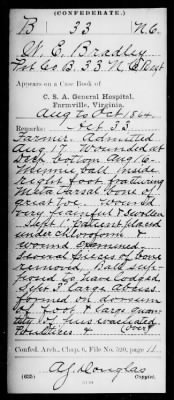 (CONFEDERATE.)
B 33 N.C.
W. E. Bradley
Pvt Co B. 33 N. C. Regt
Appears on a Case Book of
C. S. A. General Hospital,
Farmville, Virginia.
Aug to Oct 1864
Remarks: Act 33
Farmer. Admitted
Aug 17 Wounded at
Deep bottom Aug 16-
Minnie ball inside
right foot fracturing
Meta Tarsal bone of
great toe. Wound
very painful & swollen
Sept 1 patient placed
under chloroform &
wound examined
several pieces of bone
removed. Ball sup-
posed to have lodged
Sept 3 large abcess
formed on dorsum
of foot & large quan-
tity of pus evacuated
Poultices & (over)
Confed. Arch., Chap. 6, File No. 520, page 11
A. J. Douglas
(635) Copyist.